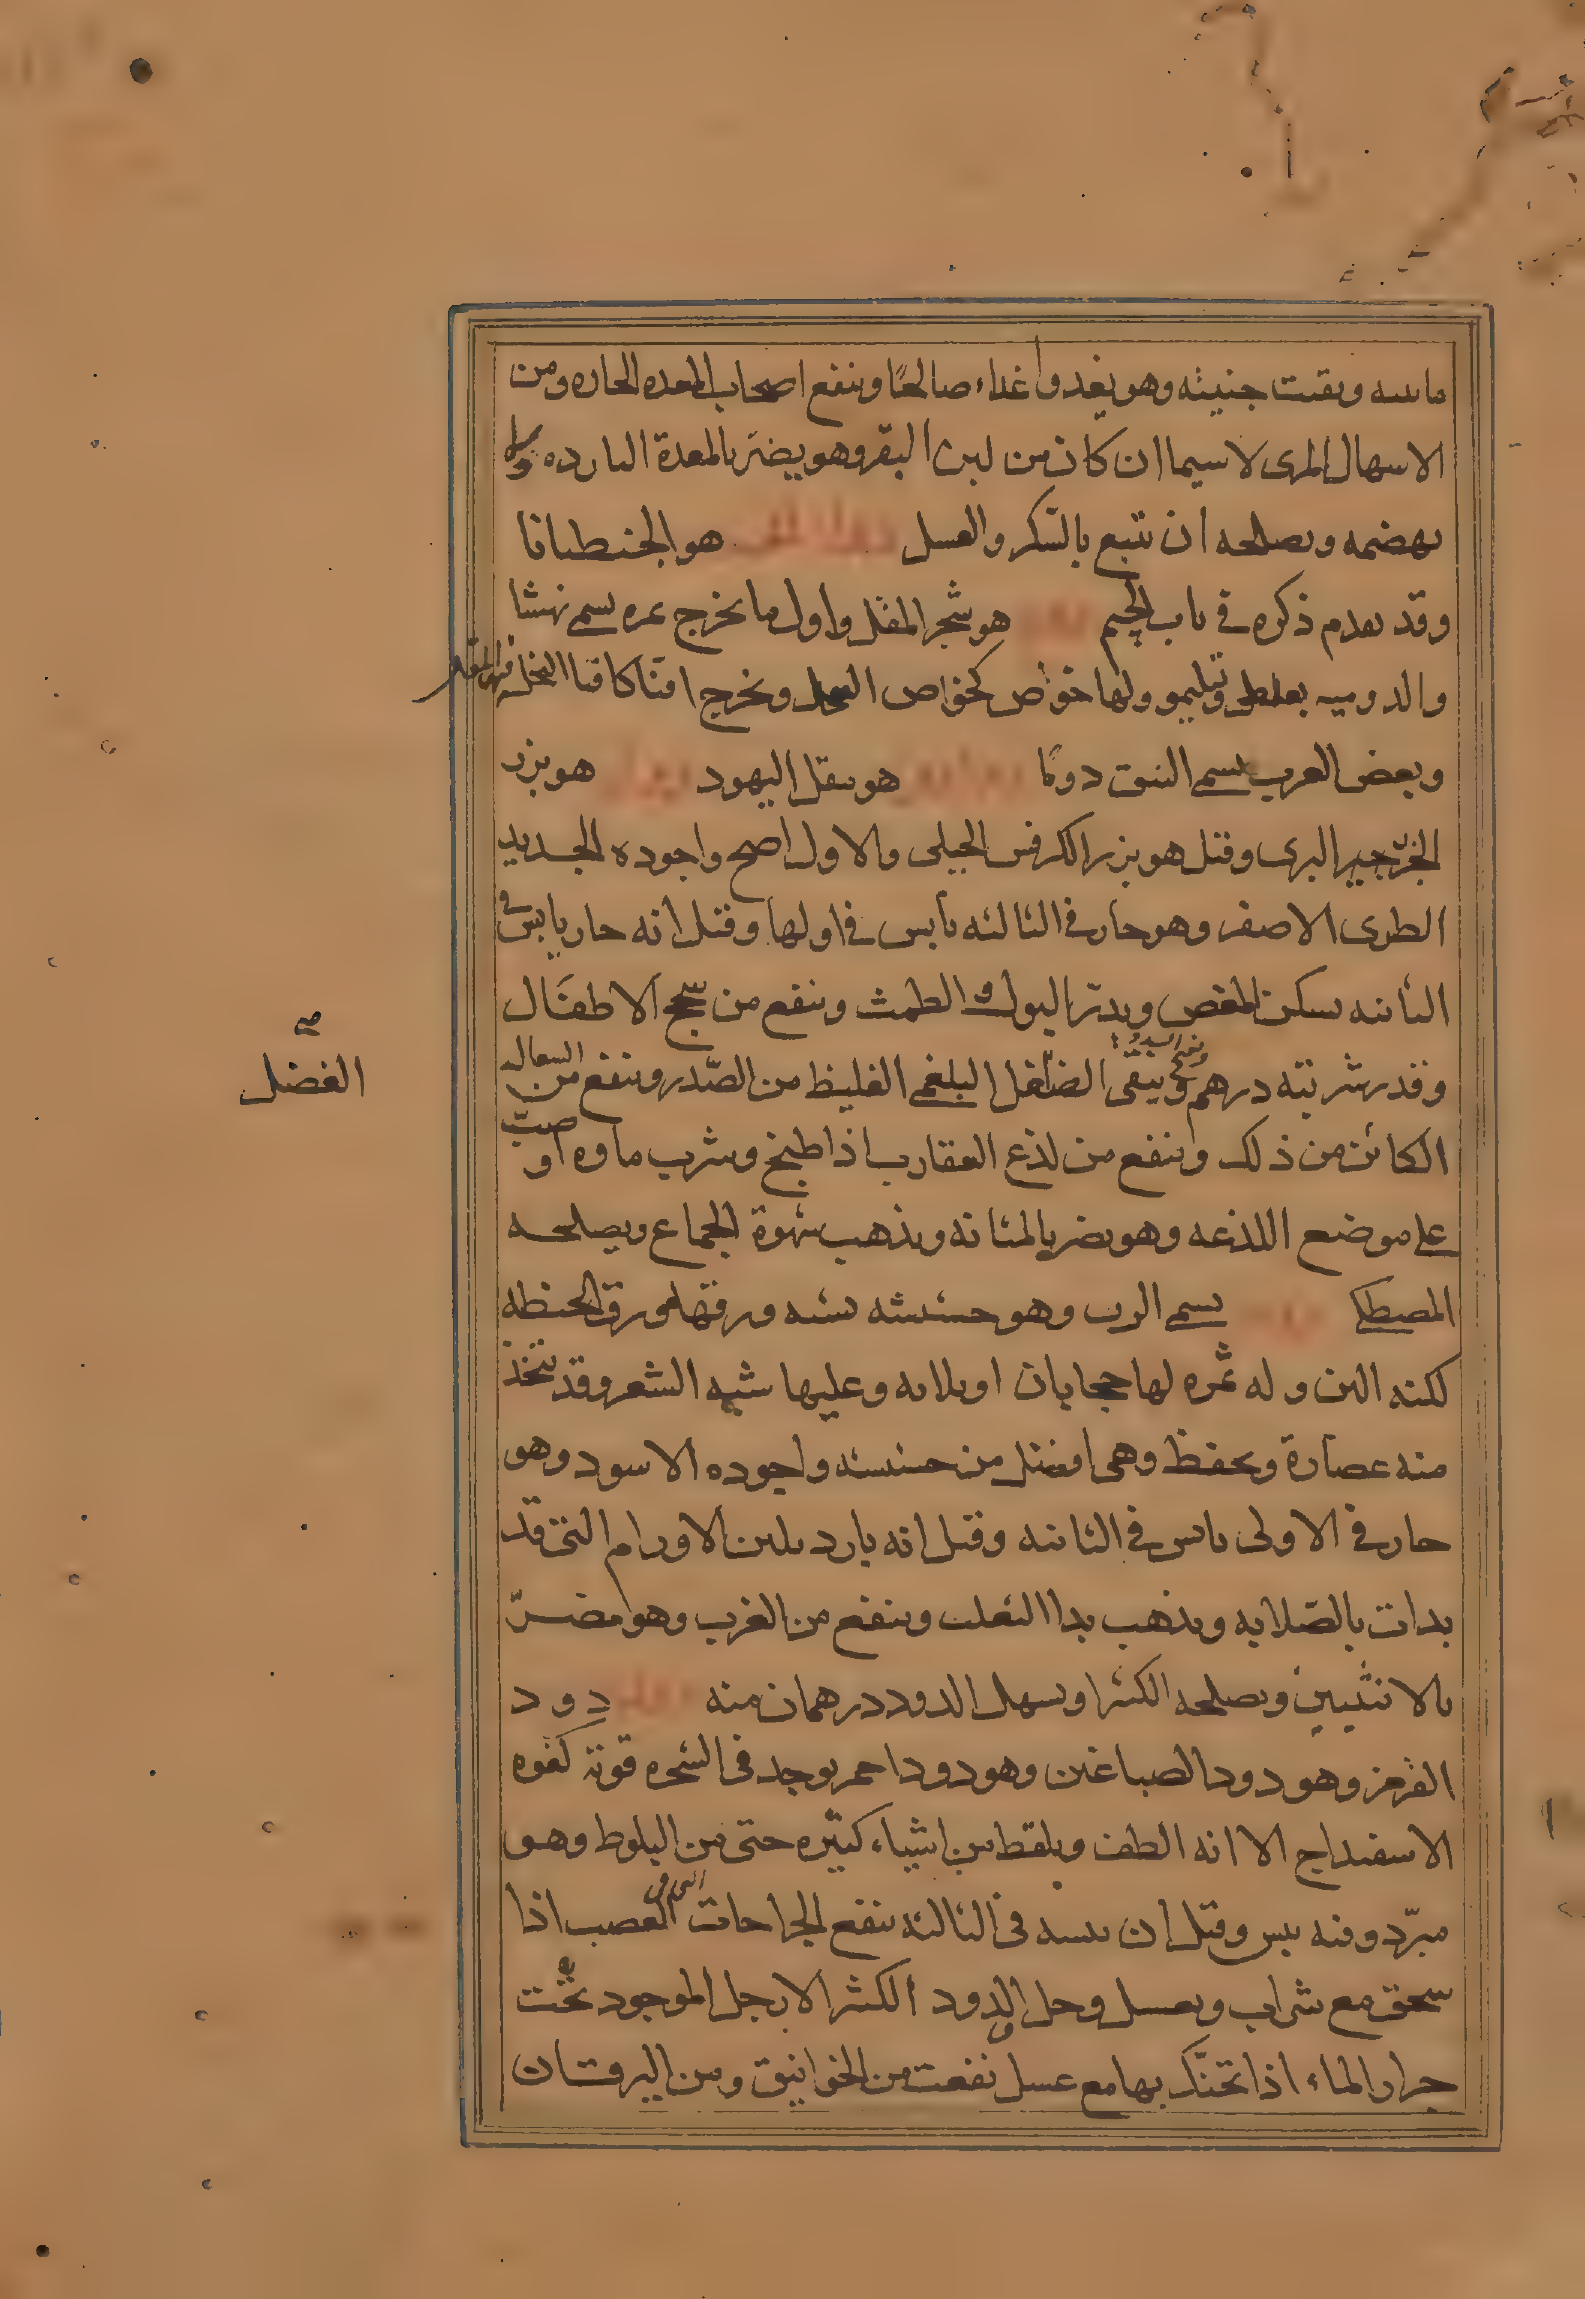 مائيته وبقيت جبنيته وهو يغدوا غذاء صالحًا وينفع اصحاب المعده الحاره ومن
الاسهال المرى لاسيما ان كان من لبن البقر وهو يضرّ بالمعدة البارده
بهضمه ويصلحه ان يتبع بالسّكر والعسل هو الجنطيانا
وقد تقدم ذكره في باب الجيم هو شجر المقل واول ما يخرج ثمره يسمى نهشا
والدوميه تغلظ وتسمو ولها خوص كخوص النخل ويخرج اقنا كاقنا النخله فيها المقل
وبعض العرب يسمى النبق دومًا هو مقل اليهود هو بزر
الجزر البرى وقيل هو بزر الكرفس الجبلى والاول اصح واجوده الجديد
الطرى الاصفر وهو حار في الثالثه يابس في اولها وقيل انه حار يابس في
الثانيه يسكن المغص ويدرّ البول و الطمث وينفع من سحج الاطفال
وقدر شربته درهم وينقى الفضل البلغمى الغليظ من الصّدر وينفع من السعال
الكائن من ذلك وينفع من لذع العقارب اذا طبخ وشرب ماوه او صبّ
على موضع اللذعه وهو يضر بالمثانه ويذهب شهوة الجماع ويصلحه
المصطكى يسمى الزن وهو حشيشه تشبه ورقها ورق الحنطه
لكنه الين وله ثمره لها حجابان او ثلاثه وعليها شبه الشعر وقد تتخذ
منه عصارة وتحفظ وهى افضل من حشيشه واجوده الاسود وهو
حار في الاولى يابس في الثانيه وقيل انه بارد يلين الاورام التى قد
بدات بالصّلابه ويذهب بدا الثعلب وينفع من الغرب وهو مضرّ
بالانثيين ويصلحه الكثيرا ويسهل الدود درهمان منه دود
القرمز وهو دود الصباغين وهو دود احمر يوجد فى الشجره قوته كقوه
الاسفيداج الا انه الطف ويلقط من اشياء كثيره حتى من البلوط وهو
مبرّد وفيه يبس وقيل ان يبسه فى الثالثه ينفع الجراحات التى فى العصب اذا
سحق مع شراب وبعسل وحل الدود الكثير الارجل الموجود تحت
جرار الماء اذا تحنّك بها مع عسل نفعت من الخوانيق ومن اليرقان
الفضل